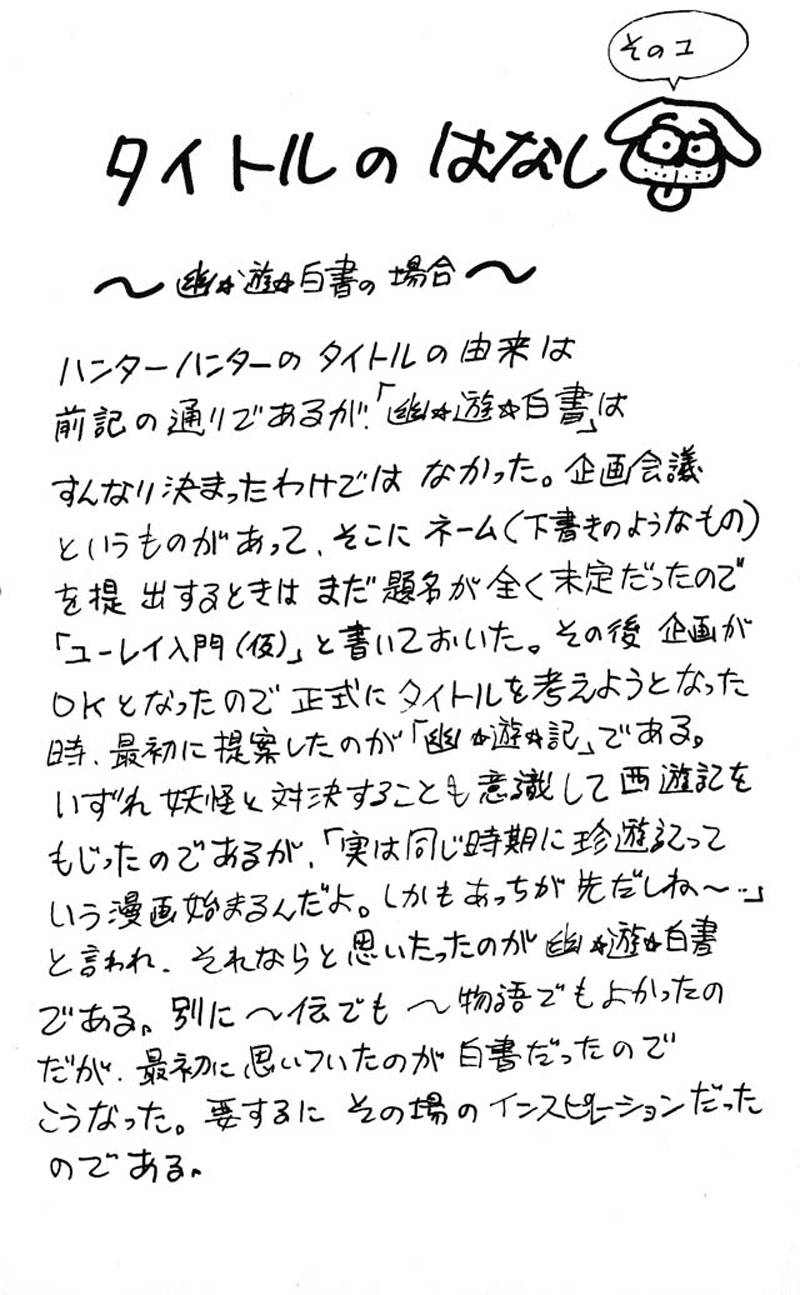 そのユ
タイトルのはなし
〜幽☆遊☆白書の場合〜
ハンターハンターのタイトルの由来は
前記の通りであるが、「幽☆遊☆白書」は
すんなり決まったわけではなかった。企画会議
というものがあって、そこにネーム(下書きのようなもの)
を提出するときはまだ題名が全く未定だったので
「ユーレイ入門(仮)」と書いておいた。その後企画が
OKとなったので正式にタイトルを考えようとなった
時、最初に提案したのが「幽☆遊☆記」である。
いずれ妖怪と対決することも意識して西遊記を
もじったのであるが、「実は同じ時期に珍遊記って
いう漫画始まるんだよ。しかもあっちが先だしね〜‥」
と言われ、それならと思いたったのが幽☆遊☆白書
である。別に〜伝でも〜物語でもよかったの
だが、最初に思いついたのが白書だったので
こうなった。要するにその場のインスピレーションだった
のである。